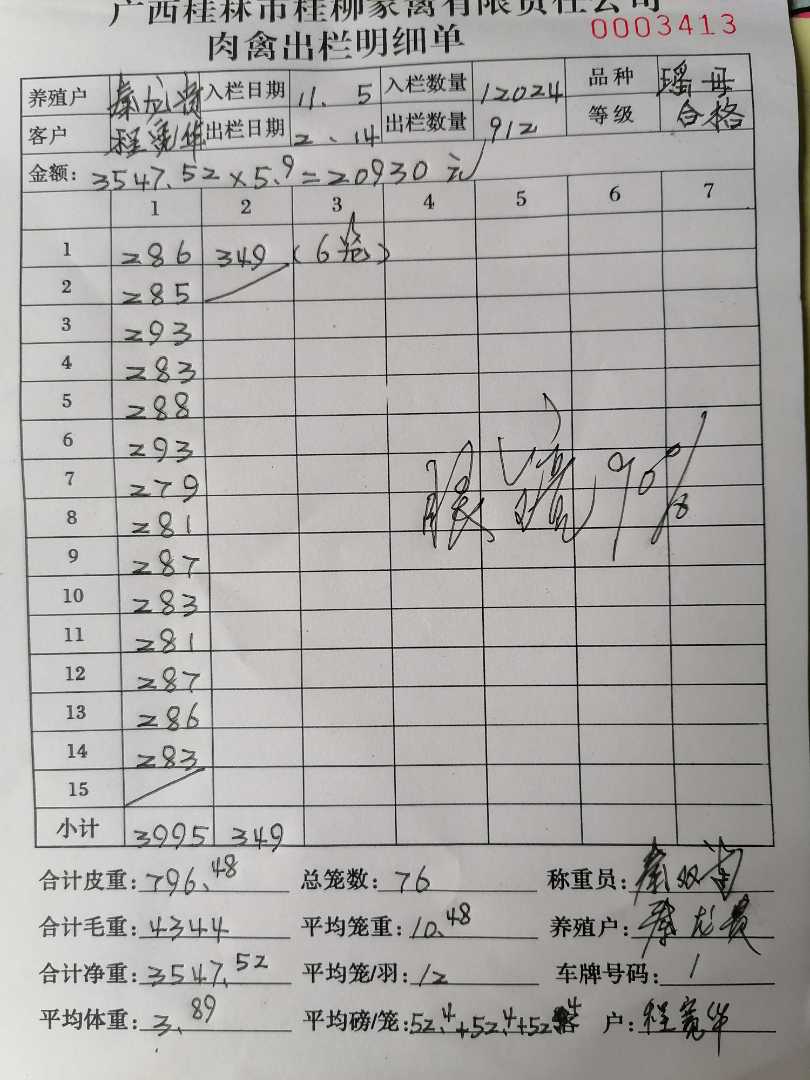 广西桂林市桂柳家禽有限责任公司
肉禽出栏明细单 0003413
养殖户 秦龙贵 入栏日期 11.5 入栏数量 12024 品种 瑶母
客户 程宽华 出栏日期 2.14 出栏数量 912 等级 合格
金额: 3547.52×5.9=20930元
1 2 3 4 5 6 7
1 286 349 (6笼)
2 285
3 293
4 283
5 288
6 293
7 279
8 281
9 287
10 283
11 281
12 287
13 286
14 283
15
小计 3995 349
90%
合计皮重: 796.48 总笼数: 76 称重员: 秦双
合计毛重: 4344 平均笼重: 10.48 养殖户: 秦龙贵
合计净重: 3547.52 平均笼/羽: 12 车牌号码: 1
平均体重: 3.89 平均磅/笼: 52.4+52.4+52.4 户: 程宽华